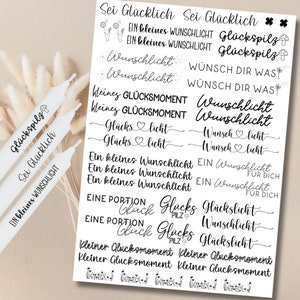 Sei Glücklich Sei Glücklich
EIN kleines WUNSCHLICHT Glückspilz
EIN kleines WUNSCHLICHT Glückspilz
Wunschlicht WÜNSCH DIR WAS
Wunschlicht WÜNSCH DIR WAS
kleines GLÜCKSMOMENT Wunschlicht
kleines GLÜCKSMOMENT Wunschlicht
Glücks licht Wunsch licht
Glücks licht Wunsch licht
Ein kleines Wunschlicht EIN Wunschlicht FÜR DICH
Ein kleines Wunschlicht EIN Wunschlicht FÜR DICH
Ein kleines Wunschlicht
EINE PORTION Glück Glücks PILZ Glückslicht
EINE PORTION Glück Glücks PILZ Wunschlicht
Glückslicht
Kleiner Glücksmoment Kleiner Glücksmoment
Kleiner Glücksmoment Kleiner Glücksmoment
Glückspilz
Sei Glücklich
EIN kleines WUNSCHLICHT